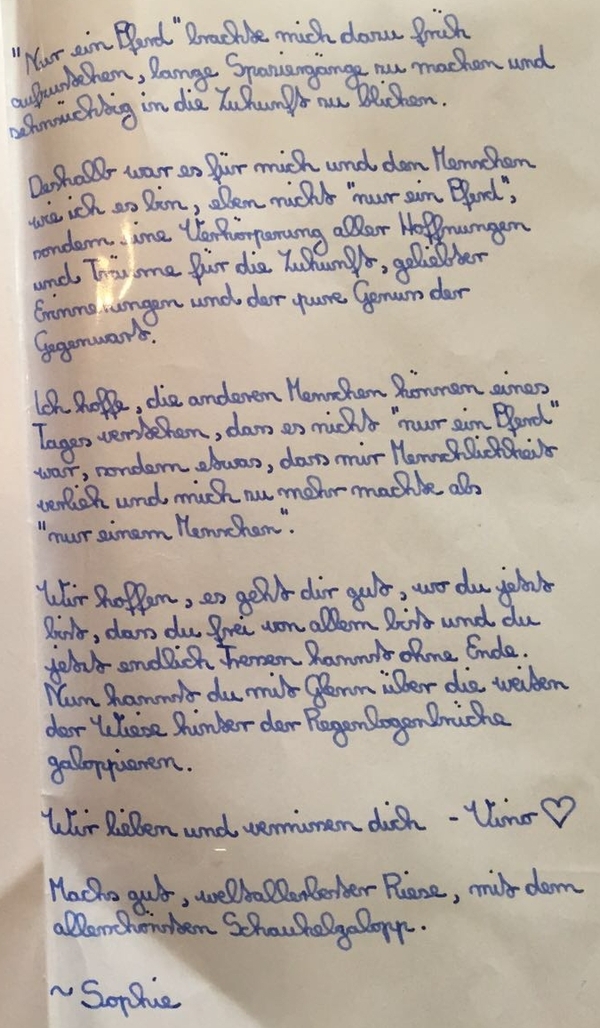 "Nur ein Pferd" brachte mich dazu früh
aufzustehen, lange Spaziergänge zu machen und
sehnsüchtig in die Zukunft zu blicken.
Deshalb war es für mich und den Menschen
wie ich es bin, eben nicht "nur ein Pferd",
sondern eine Verkörperung aller Hoffnungen
und Träume für die Zukunft, geliebter
Erinnerungen und der pure Genuss der
Gegenwart.
Ich hoffe, die anderen Menschen können eines
Tages verstehen, dass es nicht "nur ein Pferd"
war, sondern etwas, dass mir Menschlichkeit
verlieh und mich zu mehr machte als
"nur einem Menschen".
Wir hoffen, es geht dir gut, wo du jetzt
bist, dass du frei von allem bist und du
jetzt endlich Fressen kannst ohne Ende.
Nun kannst du mit Glenn über die weiten
der Wiese hinter der Regenbogenbrücke
galoppieren.
Wir lieben und vermissen dich - Vino ♡
Machs gut, weltallerbester Riese, mit dem
allerschönsten Schaukelgalopp.
~ Sophie